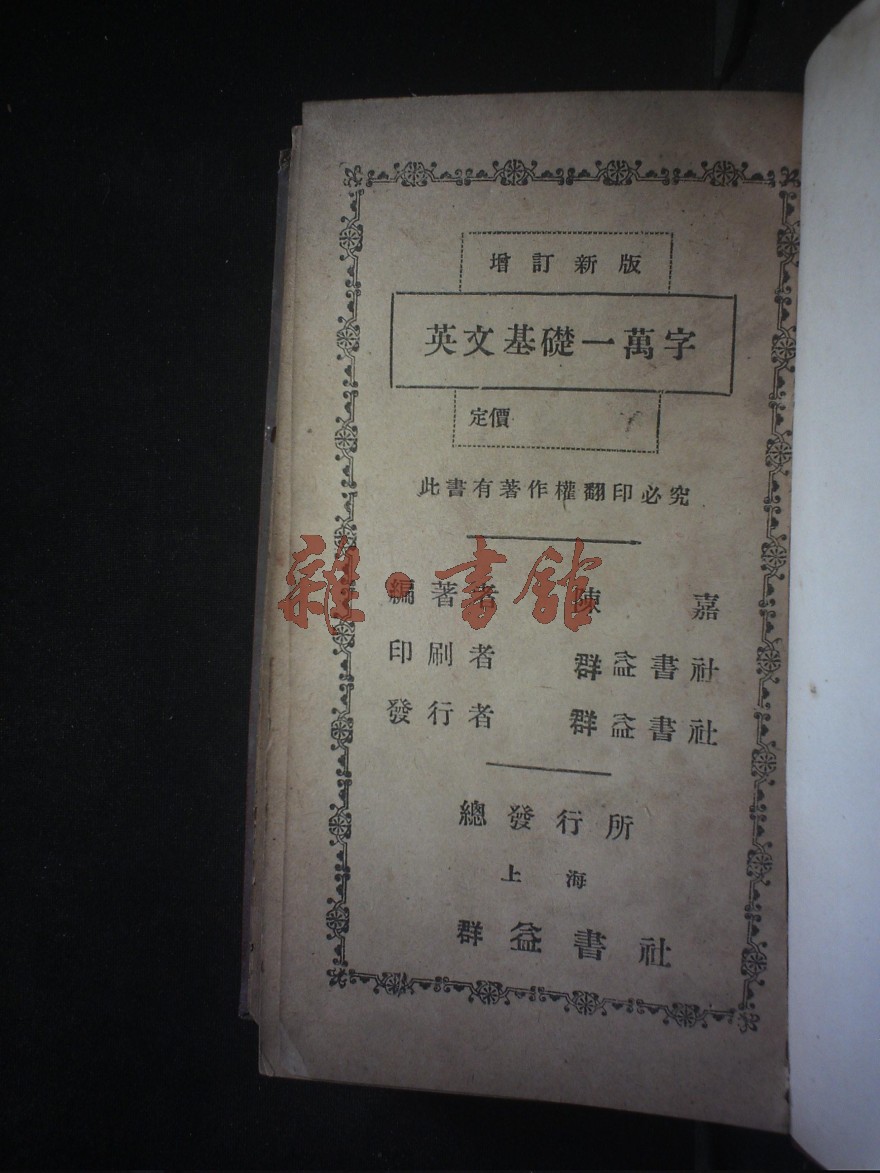 增訂新版
英文基礎一萬字
定價
此書有著作權翻印必究
編著者 陳嘉
雜·書館
印刷者 群益書社
發行者 群益書社
總發行所
上海
群益書社